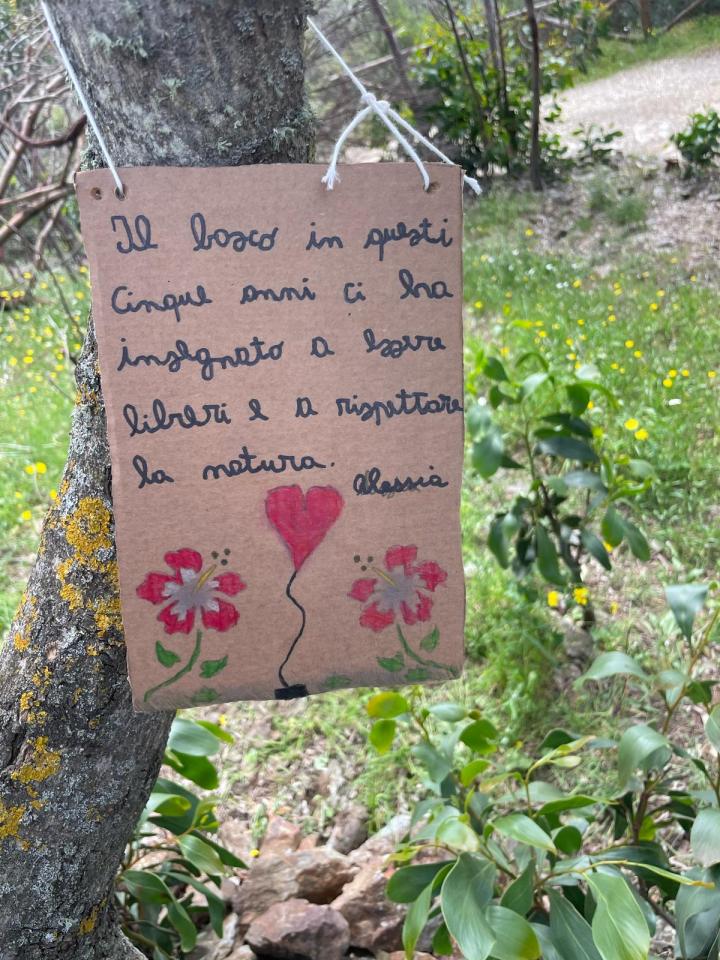 Il bosco in questi
Cinque anni ci ha
insegnato a essere
liberi e a rispettare
la natura.
Alessia